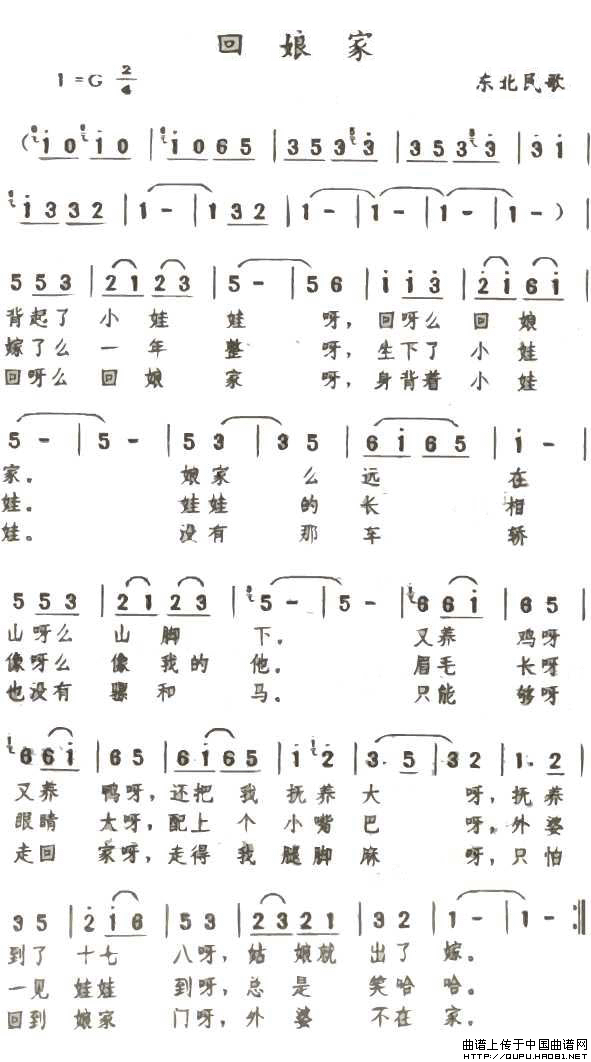 回 娘 家
1=G 2/4
东北民歌
(i0 i0 | i065 | 3533 | 3533 | 3i |
i332 | 1- | 132 | 1- | 1- | 1- | 1- ) |
5 53 | 21 23 | 5- | 56 | i i3 | 2i 6i |
背起了 小 娃 娃 呀，回呀么 回 娘
嫁了么 一 年 整 呀，生下了 小 娃
回呀么 回 娘 家 呀，身背着 小 娃
5- | 5- | 53 | 35 | 6i65 | i- |
家。 娘家 么 远 在
娃。 娃娃 的 长 相
娃。 没有 那 车 轿
5 53 | 21 23 | 5- | 5- | 6 6i | 65 |
山呀么 山 脚 下。 又养 鸡呀
像呀么 像 我的 他。 眉毛 长呀
也没有 骡 和 马。 只能 够呀
6 6i | 65 | 6i65 | i2 | 3. 5 | 32 | 1. 2 |
又养 鸭呀，还把 我 抚养 大 呀，抚养
眼睛 大呀，配上 个 小嘴 巴 呀，外婆
走回 家呀，走得 我 腿脚 麻 呀，只怕
35 | 2 i6 | 53 | 23 21 | 32 | 1- | 1- :||
到了 十七 八呀，姑 娘就 出了 嫁。
一见 娃娃 到呀，总 是 笑哈 哈。
回到 娘家 门呀，外 婆 不在 家。
曲谱上传于中国曲谱网
http://QUPU.HAO81.NET